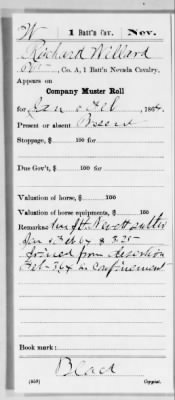 W | 1 Batt'n Cav. | Nev.
Richard Willard
Pvt, Co. A, 1 Batt'n Nevada Cavalry.
Appears on
Company Muster Roll
for Jan & Feb, 1864.
Present or absent Present
Stoppage, $ 100 for
Due Gov't, $ 100 for
Valuation of horse, $ 100
Valuation of horse equipments, $ 100
Remarks:
Jan & Feb 64 $ 3.25
Joined from desertion
Feb 3/64 in confinement
Book mark:
(359)
Copyist.